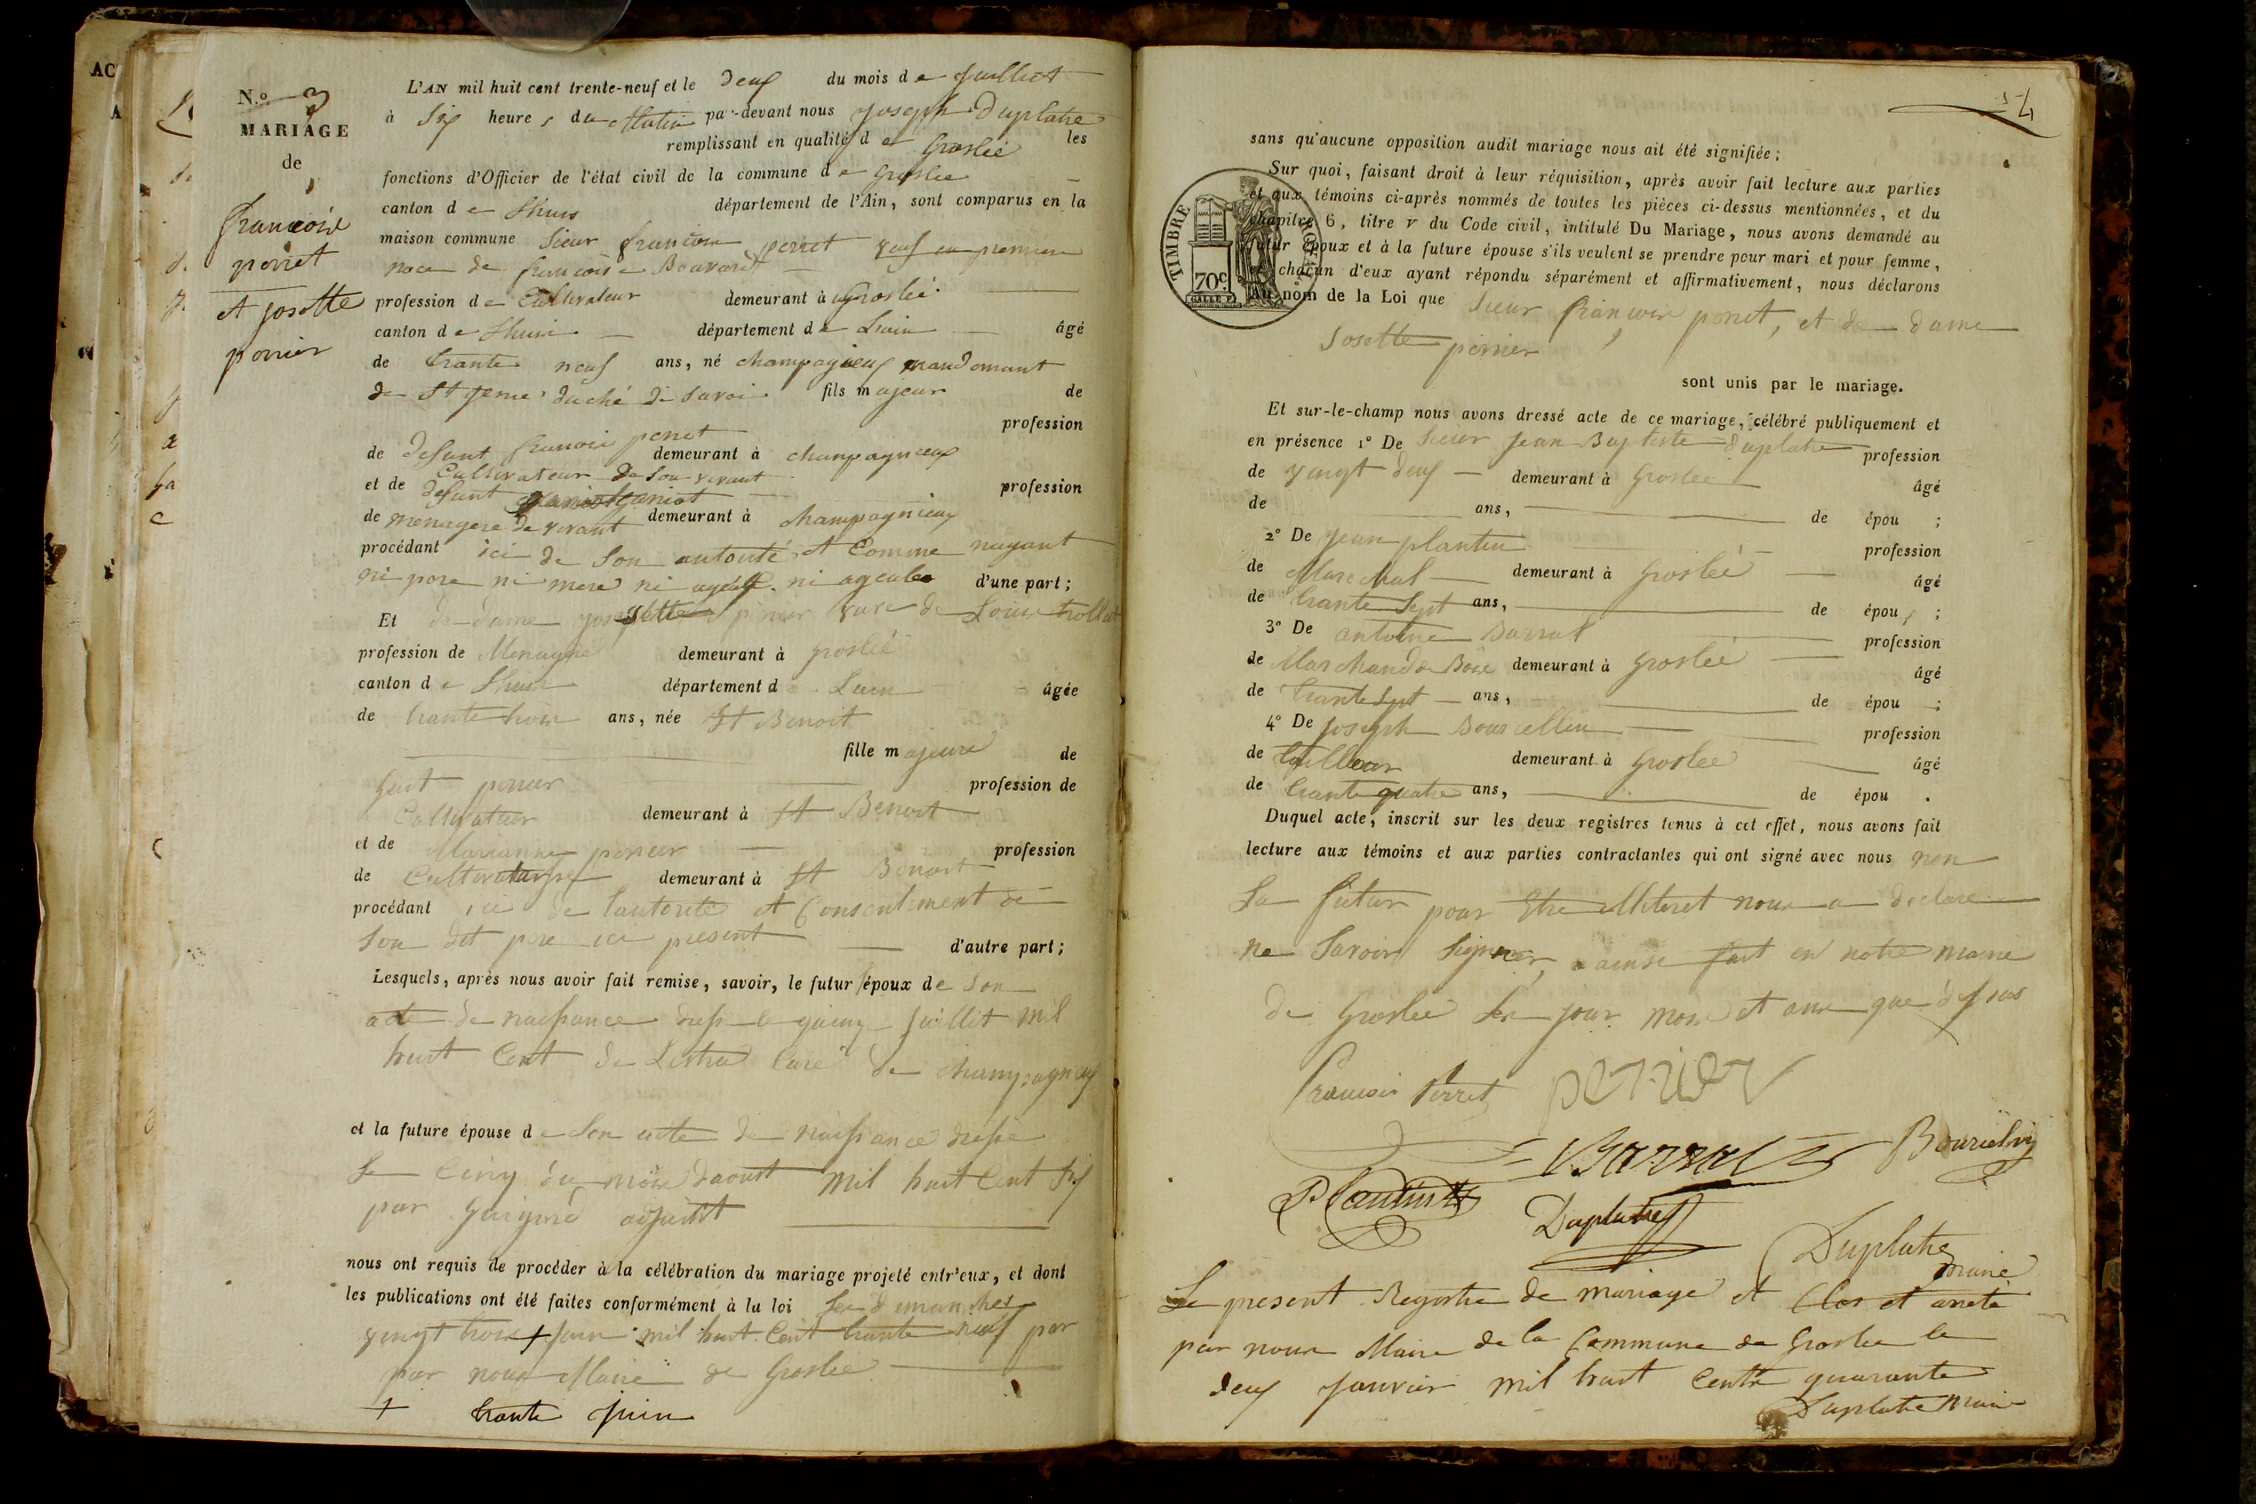 N.o 3
MARIAGE
de
francois
perret
et josette
perrier
L'AN mil huit cent trente-neuf et le deux du mois de Juilliet
à Six heures du Matin par-devant nous Joseph Duplatre
remplissant en qualité de Groslée les
fonctions d'Officier de l'état civil de la commune de Groslee
canton de Lhuis département de l'Ain, sont comparus en la
maison commune Sieur francois perret veuf en premiere
noce de francoise Bouvard
profession de Cultivateur demeurant à Groslée
canton de Lhuis département de Lain âgé
de trante neuf ans, né champagneux mandemant
de St genie duché de Savoi fils majeur de
profession
de defunt francois perret demeurant à champagneux
Cultivateur de Son vivant
et de defunt profession
de menagere de vivant demeurant à champagnieux
procédant ici de Son autorité et Comme nayant
ni pere ni mere ni ayeul ni ayeule d'une part;
Et de dame josette perrier veuve de Louis
profession de Menagere demeurant à Groslée
canton de Lhuis département d Lain âgée
de trante trois ans, née St Benoit
fille majeure de
perrier profession de
Cultivateur demeurant à St Benoit
et de Marianne perrier profession
de Cultivatrise demeurant à St Benoit
procédant ici de lautorité et Consentement de
Son dit pere ici present d'autre part;
Lesquels, après nous avoir fait remise, savoir, le futur époux de Son
acte de naissance dressé le Juillit mil
huit Cent Curé de champagneux
et la future épouse de Son acte de naissance dressé
Le Cinq du mois daoust mil huit Cent Six
par adjoint
nous ont requis de procéder à la célébration du mariage projeté entr'eux, et dont
les publications ont été faites conformément à la loi Les dimanches
vingt trois + Juin mil huit Cent trante neuf par
par nous Maire de Groslée
+ trante Juin
54
sans qu'aucune opposition audit mariage nous ait été signifiée;
Sur quoi, faisant droit à leur réquisition, après avoir fait lecture aux parties
et aux témoins ci-après nommés de toutes les pièces ci-dessus mentionnées, et du
chapitre 6, titre v du Code civil, intitulé Du Mariage, nous avons demandé au
futur époux et à la future épouse s'ils veulent se prendre pour mari et pour femme,
et chacun d'eux ayant répondu séparément et affirmativement, nous déclarons
Au nom de la Loi que Sieur francois perret, et de dame
Josette perrier
sont unis par le mariage.
TIMBRE ROYAL
70c
Et sur-le-champ nous avons dressé acte de ce mariage, célébré publiquement et
en présence 1o De Sieur Jean Baptiste Duplatre profession
de vingt deux demeurant à Groslee âgé
de ans, de épou ;
2o De Jean plantin profession
de Marechal demeurant à Groslée âgé
de trante Sept ans, de épou ;
3o De antoine Barral profession
de Marchand de Bois demeurant à Groslée âgé
de trante Sept ans, de épou ;
4o De Joseph Bourcellin profession
de tailleur demeurant à Groslee âgé
de trante quatre ans, de épou .
Duquel acte, inscrit sur les deux registres tenus à cet effet, nous avons fait
lecture aux témoins et aux parties contractantes qui ont signé avec nous non
La futur pour Etre illiteret nous a declaré
ne Savoir Signer, ainsi fait en notre mairie
de Groslée Les jour mois et ans que dessus
francois Perret perrier
Barral Bourcelin
Plantin Duplatre
Duplatre
maire
Le present Registre de mariage et Clos et areté
par nous Maire de la Commune de Groslee le
deux Janvier mil huit Cents quarante
Duplatre Maire